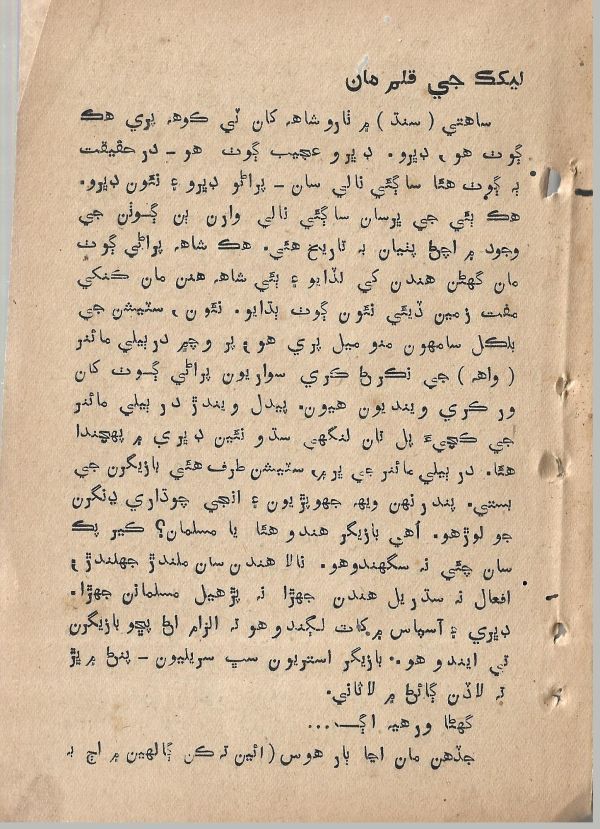 ليکڪ جي قلم مان
ساهتي ( سنڌ ) ۾ ٺارو شاهہ کان ٽي ڪوهہ پري هڪ
ڳوٺ هو، ديرو. ديرو عجيب ڳوٺ هو - درحقيقت
ٻہ ڳوٺ هئا ساڳئي نالي سان - پراڻو ديرو ۽ نئون ديرو.
هڪ ٻئي جي ڀرسان ساڳئي نالي وارن ٻن ڳوٺن جي
وجود ۾ اچڻ پٺيان بہ تاريخ هئي. هڪ شاهہ پراڻي ڳوٺ
مان گهڻن هندن کي لڏايو ۽ ٻئي شاهہ هنن مان ڪنکي
مفت زمين ڏيئي نئون ڳوٺ ٻڌايو. نئون، سٽيشن جي
بلڪل سامهون منو ميل پري هو، پر وچ ۾ دربيلي مائنر
( واهہ ) جي نڪرڻ ڪري سواريون پراڻي ڳوٺ کان
ور ڪري وينديون هيون. پيدل ويندڙ دربيلي مائنر
جي ڪچيءَ پل تان لنگهي سڌو نئين ديري ۾ پهچندا
هئا. دربيلي مائنر جي ڀر ۾، سٽيشن طرف هئي بازيگرن جي
بستي. پندرنهن ويهہ جهوپڙيون ۽ انجي چوڌاري ڍنگرن
جو لوڙهو. اُهي بازيگر هندو هئا يا مسلمان؟ ڪير پڪ
سان چئي نہ سگهندوهو. نالا هندن سان ملندڙ جهلندڙ،
افعال نہ سڌريل هندن جهڙا نہ پڙهيل مسلمانن جهڙا.
ديري ۽ آسپاس ۾ کاٽ لڳندو هو تہ الزام اڻ پڇو بازيگرن
تي ايندو هو. بازيگر استريون سڀ سريليون - پنڻ ۾ ڀڙ
تہ لاڏن ڳائڻ ۾ لاثاني.
گهڻا ورهيہ اڳ...
جڏهن مان اڃا ٻار هوس (ائين تہ ڪن ڳالهين ۾ اڄ بہ